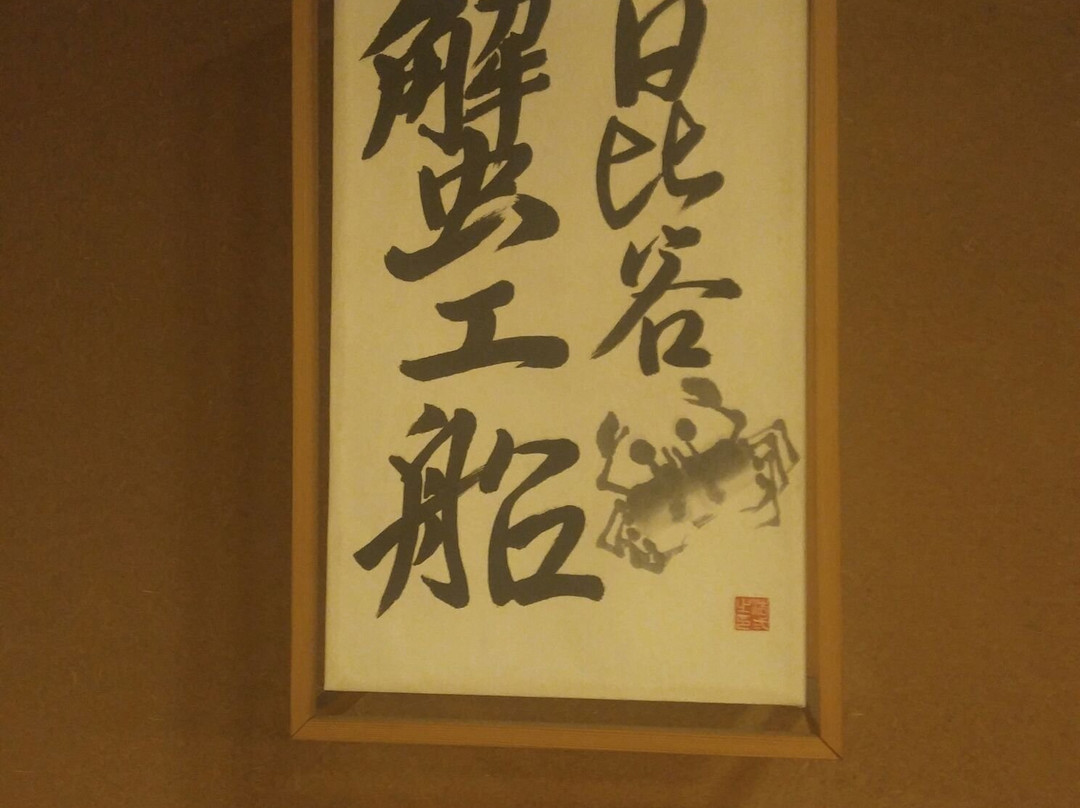 日比谷
蟹工船